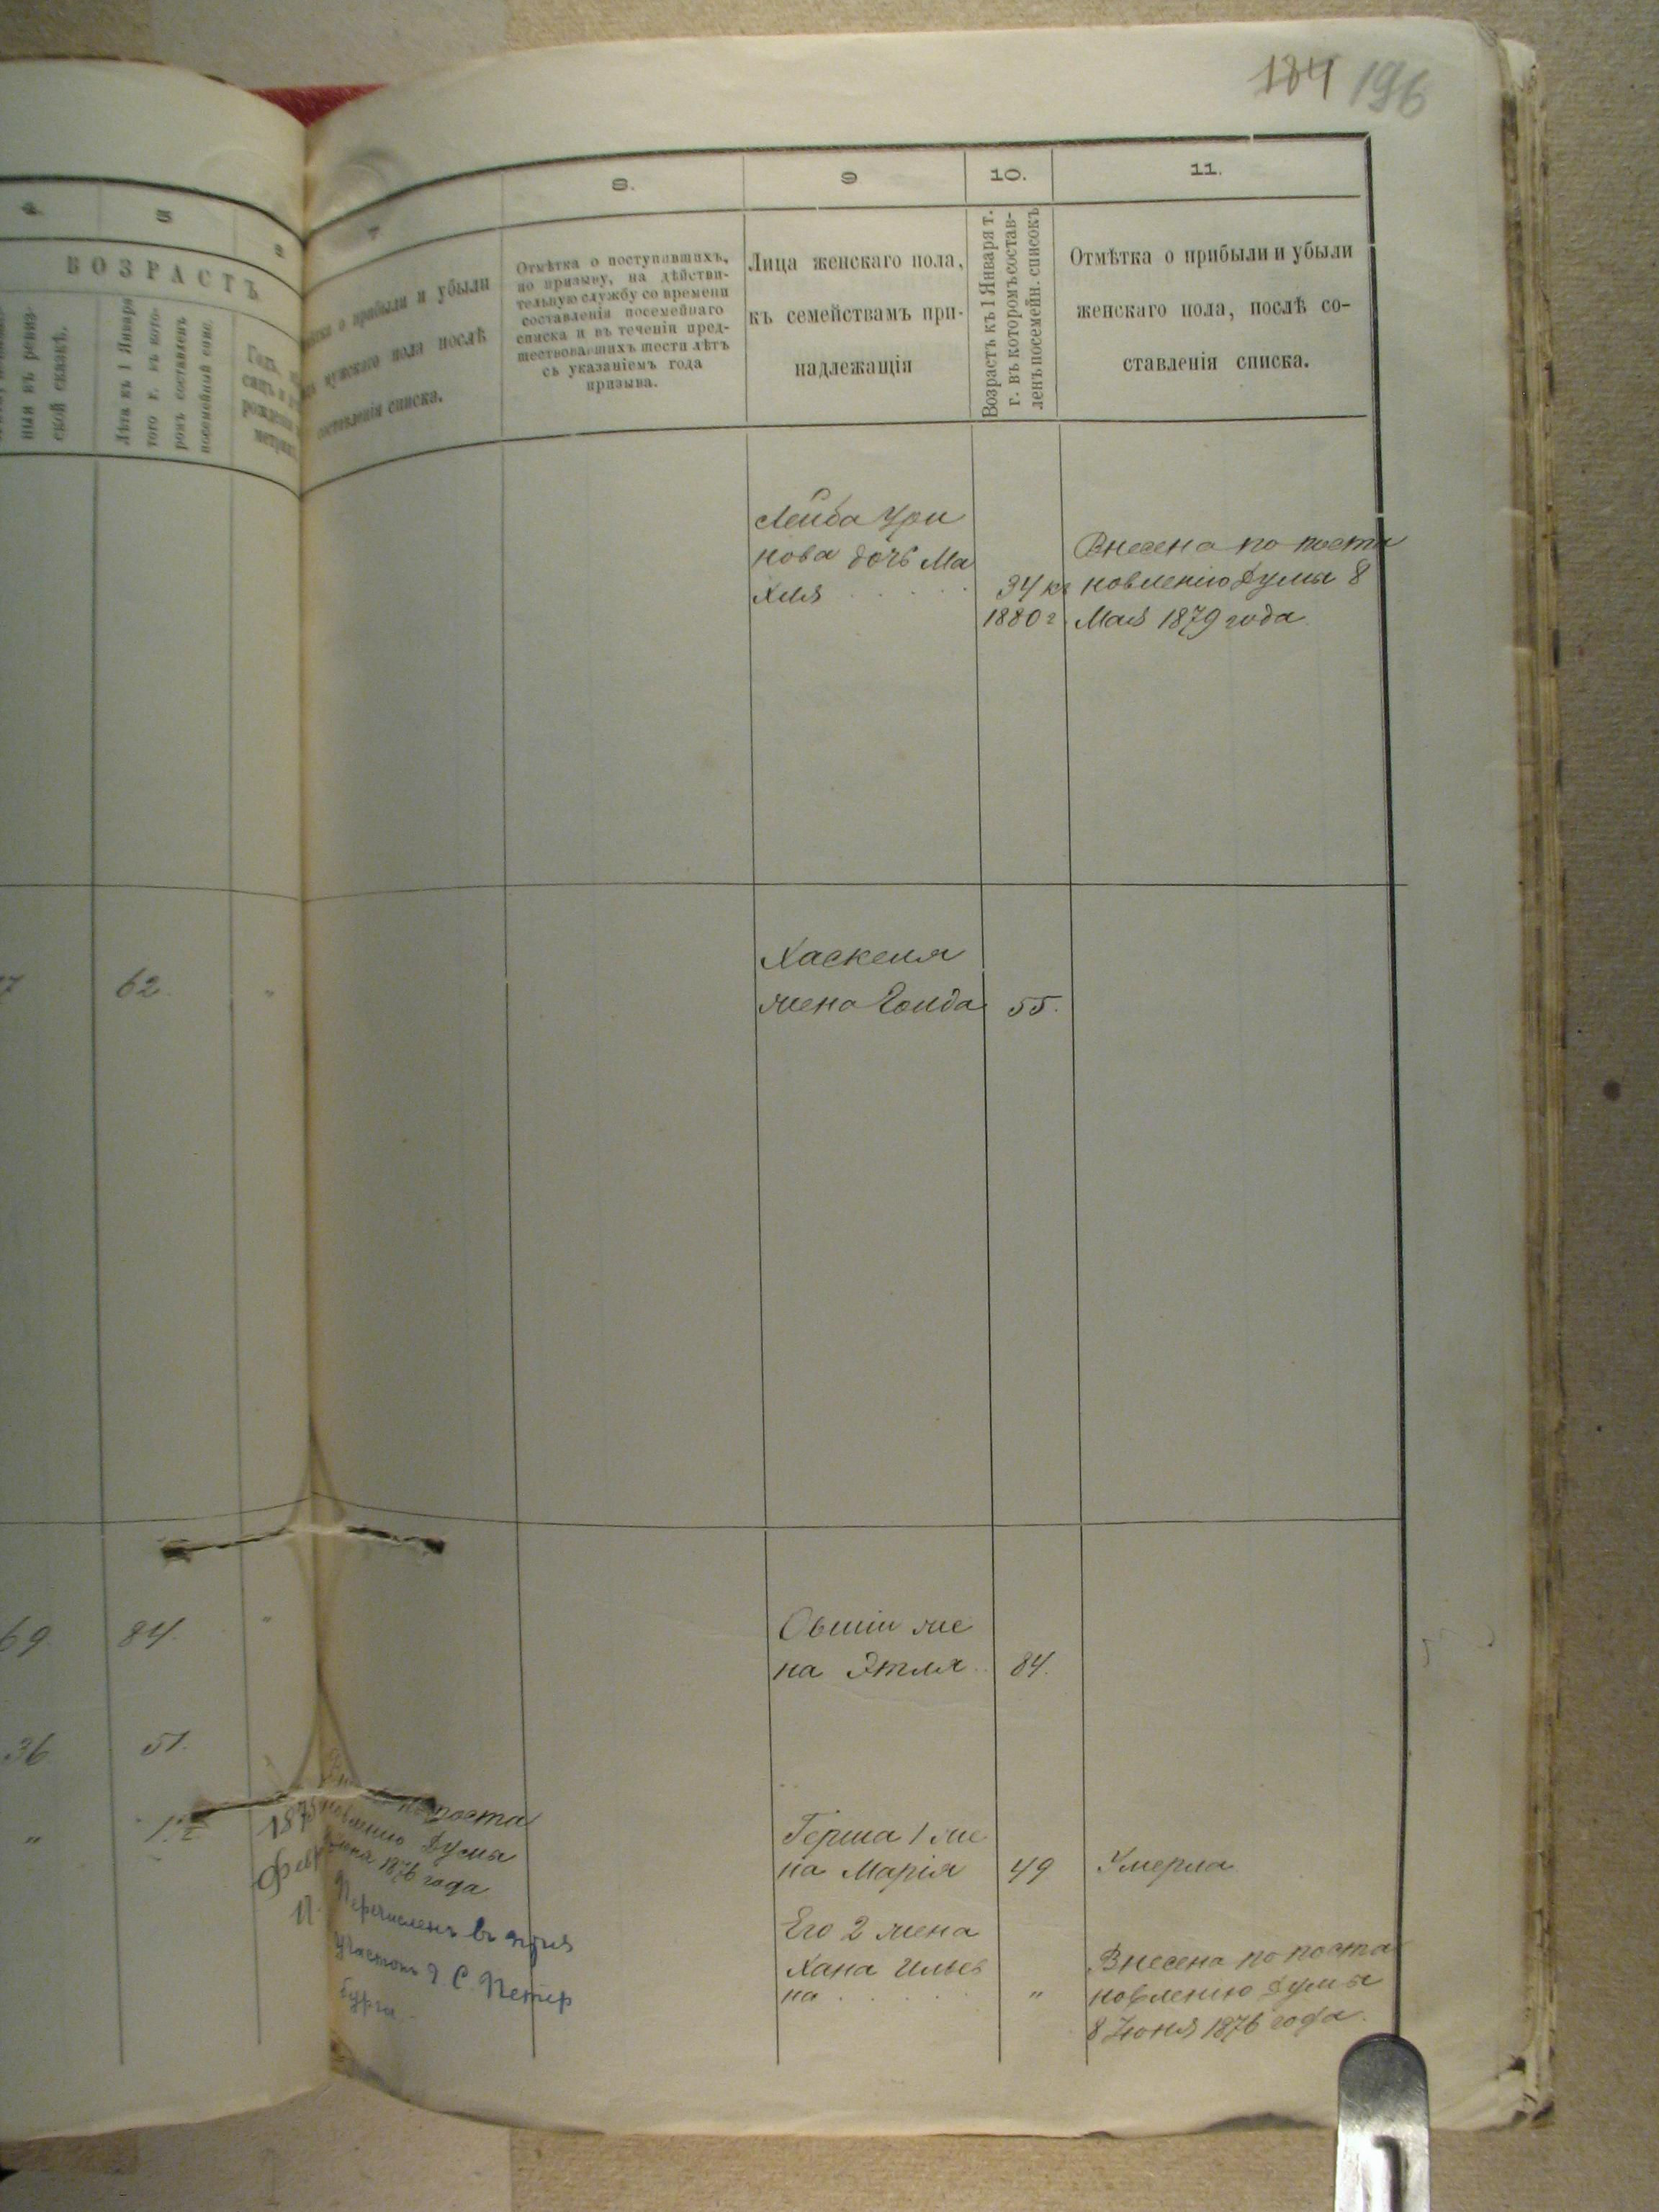 184 196
4
5
6
7
8.
9
10.
11.
ВОЗРАСТЪ
ныя въ ревиз-
ской сказкѣ.
Лѣта къ 1 Января
того г. въ кото-
ромъ составленъ
посемейный спис.
о прибыли и убыли
мужскаго пола послѣ
составленія списка.
Отмѣтка о поступившихъ,
по призыву, на дѣйстви-
тельную службу со времени
составленія посемейнаго
списка и въ теченіи пред-
шествовавшихъ шести лѣтъ
съ указаніемъ года
призыва.
Лица женскаго пола,
къ семействамъ при-
надлежащія
Возрастъ къ 1 Января т.
г. въ которомъ состав-
ленъ посемейн. списокъ
Отмѣтка о прибыли и убыли
женскаго пола, послѣ со-
ставленія списка.
Лейба Ури
нова дочь Ма
хля
34 къ
1880 г.
Внесена по поста
новленію Думы 8
Мая 1879 года.
62. "
Хаскеля
жена Голда 55.
69 84. "
Овшіи же
на Этля 84.
36 51.
"
по поста
новленію Думы
1876 года
Перечисленъ въ
участокъ г. С. Петер
бурга.
Герша 1 же
на Марія 49 Умерла
Его 2 жена
Хана Ильев
на "
Внесена по поста
новленію Думы
8 Іюня 1876 года.